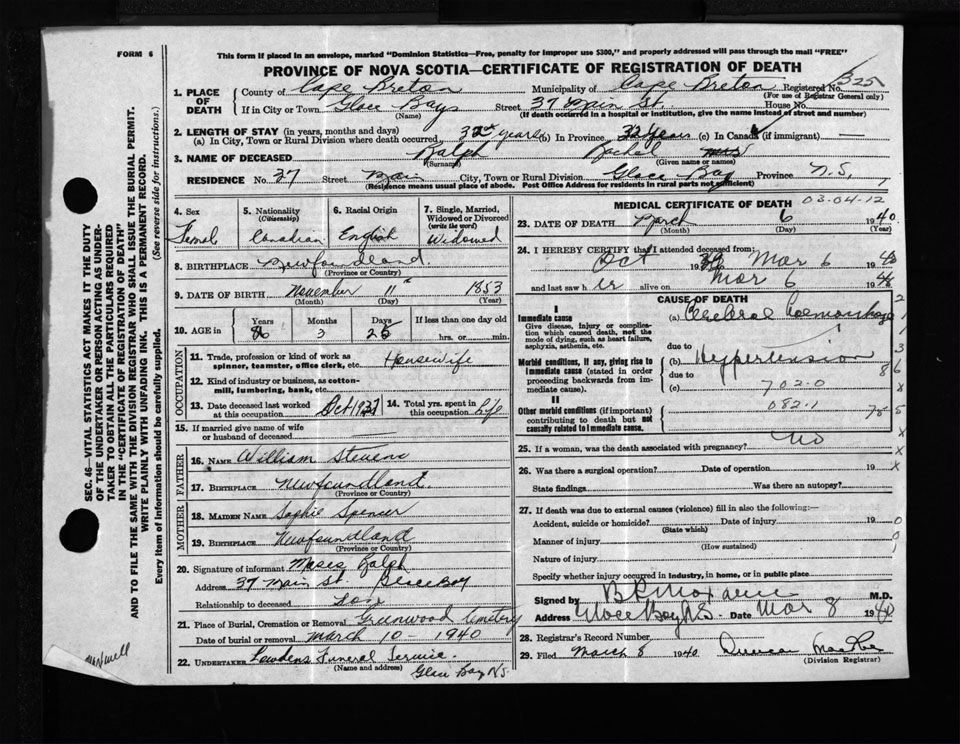 FORM 6
This form if placed in an envelope, marked "Dominion Statistics—Free, penalty for improper use $300," and properly addressed will pass through the mail "FREE"
PROVINCE OF NOVA SCOTIA—CERTIFICATE OF REGISTRATION OF DEATH
1. PLACE OF DEATH County of Cape Breton Municipality of Cape Breton Registered No. 325
(For use of Registrar General only)
If in City or Town Glace Bay Street 37 Main St. House No.
(Name) (If death occurred in a hospital or institution, give the name instead of street and number)
2. LENGTH OF STAY (in years, months and days)
(a) In City, Town or Rural Division where death occurred 32 years (b) In Province 32 Years (c) In Canada (if immigrant)
3. NAME OF DECEASED Ralph Rachel Mrs
(Surname) (Given name or names)
RESIDENCE No. 37 Street Main City, Town or Rural Division Glace Bay Province N.S.
(Residence means usual place of abode. Post Office Address for residents in rural parts not sufficient)
4. Sex 5. Nationality 6. Racial Origin 7. Single, Married, Widowed or Divorced
(Citizenship) (write the word)
Femal Canadian English Widowed
8. BIRTHPLACE Newfoundland
(Province or Country)
9. DATE OF BIRTH November 11 1853
(Month) (Day) (Year)
10. AGE in Years Months Days If less than one day old
86 3 25 hrs. or min.
OCCUPATION
11. Trade, profession or kind of work as spinner, teamster, office clerk, etc. Housewife
12. Kind of industry or business, as cotton-mill, lumbering, bank, etc.
13. Date deceased last worked at this occupation Oct 1937 14. Total yrs. spent in this occupation life
15. If married give name of wife or husband of deceased
FATHER
16. NAME William Stevens
17. BIRTHPLACE Newfoundland
(Province or Country)
MOTHER
18. MAIDEN NAME Sophie Spencer
19. BIRTHPLACE Newfoundland
(Province or Country)
20. Signature of informant Moses Ralph
Address 37 Main St. Glace Bay
Relationship to deceased Son
21. Place of Burial, Cremation or Removal Greenwood Cemetery
Date of burial or removal March 10 - 1940
22. UNDERTAKER Lowdens Funeral Service.
(Name and address) Glace Bay N.S.
MEDICAL CERTIFICATE OF DEATH
03.04.12
23. DATE OF DEATH March 6 1940
(Month) (Day) (Year)
24. I HEREBY CERTIFY that I attended deceased from:
Oct 19 Mar 6 1940
and last saw her alive on Mar 6 1940
CAUSE OF DEATH
I
Immediate cause
Give disease, injury or complication which caused death, not the mode of dying, such as heart failure, asphyxia, asthenia, etc.
(a) Cerebral Haemorrhage
due to
Morbid conditions, if any, giving rise to immediate cause (stated in order proceeding backwards from immediate cause).
(b) Hypertension
due to
(c) 702.0
II
Other morbid conditions (if important) contributing to death but not causally related to immediate cause.
082.1
25. If a woman, was the death associated with pregnancy? No
26. Was there a surgical operation? Date of operation 19
State findings Was there an autopsy?
27. If death was due to external causes (violence) fill in also the following:—
Accident, suicide or homicide? Date of injury 19
(State which)
Manner of injury
(How sustained)
Nature of injury
Specify whether injury occurred in industry, in home, or in public place
Signed by M.D.
Address Glace Bay N.S. Date Mar 8 1940
28. Registrar's Record Number
29. Filed March 8 1940 Duncan
(Division Registrar)
SEC. 46—VITAL STATISTICS ACT MAKES IT THE DUTY
OF THE UNDERTAKER OR PERSON ACTING AS UNDER-
TAKER TO OBTAIN ALL THE PARTICULARS REQUIRED
IN THE "CERTIFICATE OF REGISTRATION OF DEATH"
AND TO FILE THE SAME WITH THE DIVISION REGISTRAR WHO SHALL ISSUE THE BURIAL PERMIT.
WRITE PLAINLY WITH UNFADING INK. THIS IS A PERMANENT RECORD.
Every item of information should be carefully supplied. (See reverse side for instructions.)